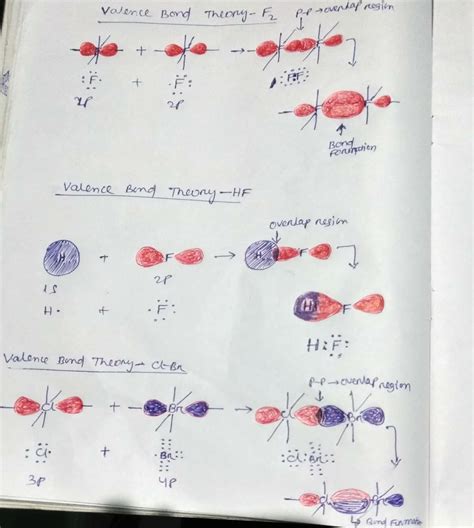 Valence Bond Theory - F2
P-P → overlap region
F + F → F F
:F: + :F: :FF:
2P 2P
Bond
Formation
Valence Bond Theory - HF
overlap region
H + F → H F
1S 2P
H F
H· + :F:
H:F:
Valence Bond Theory → Cl-Br
P-P → overlap region
Cl + Br → Cl Br
:Cl· ·Br: :Cl:Br:
3P 4P
Cl Br
↳ Bond Formatio